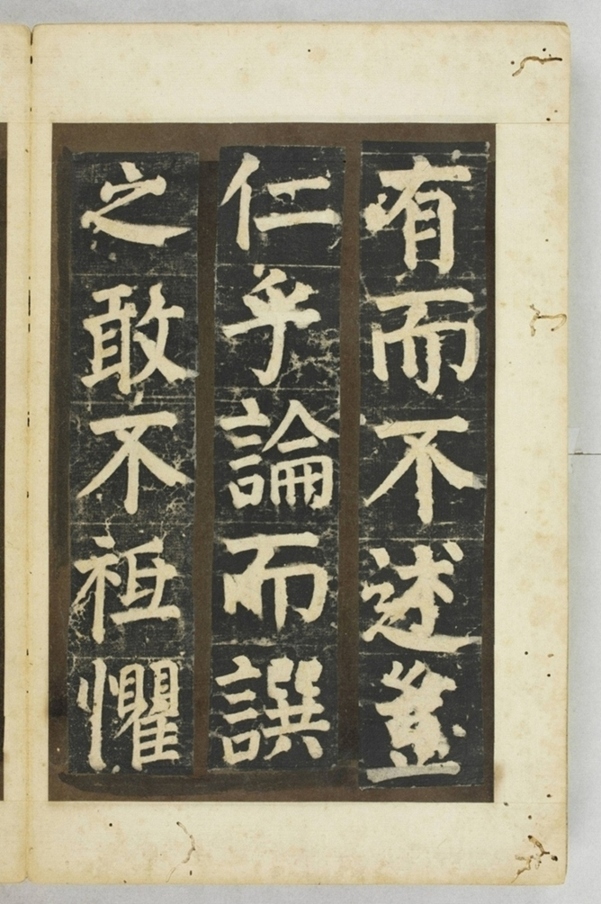 有而不述豈
仁乎論而譔
之敢不祗懼